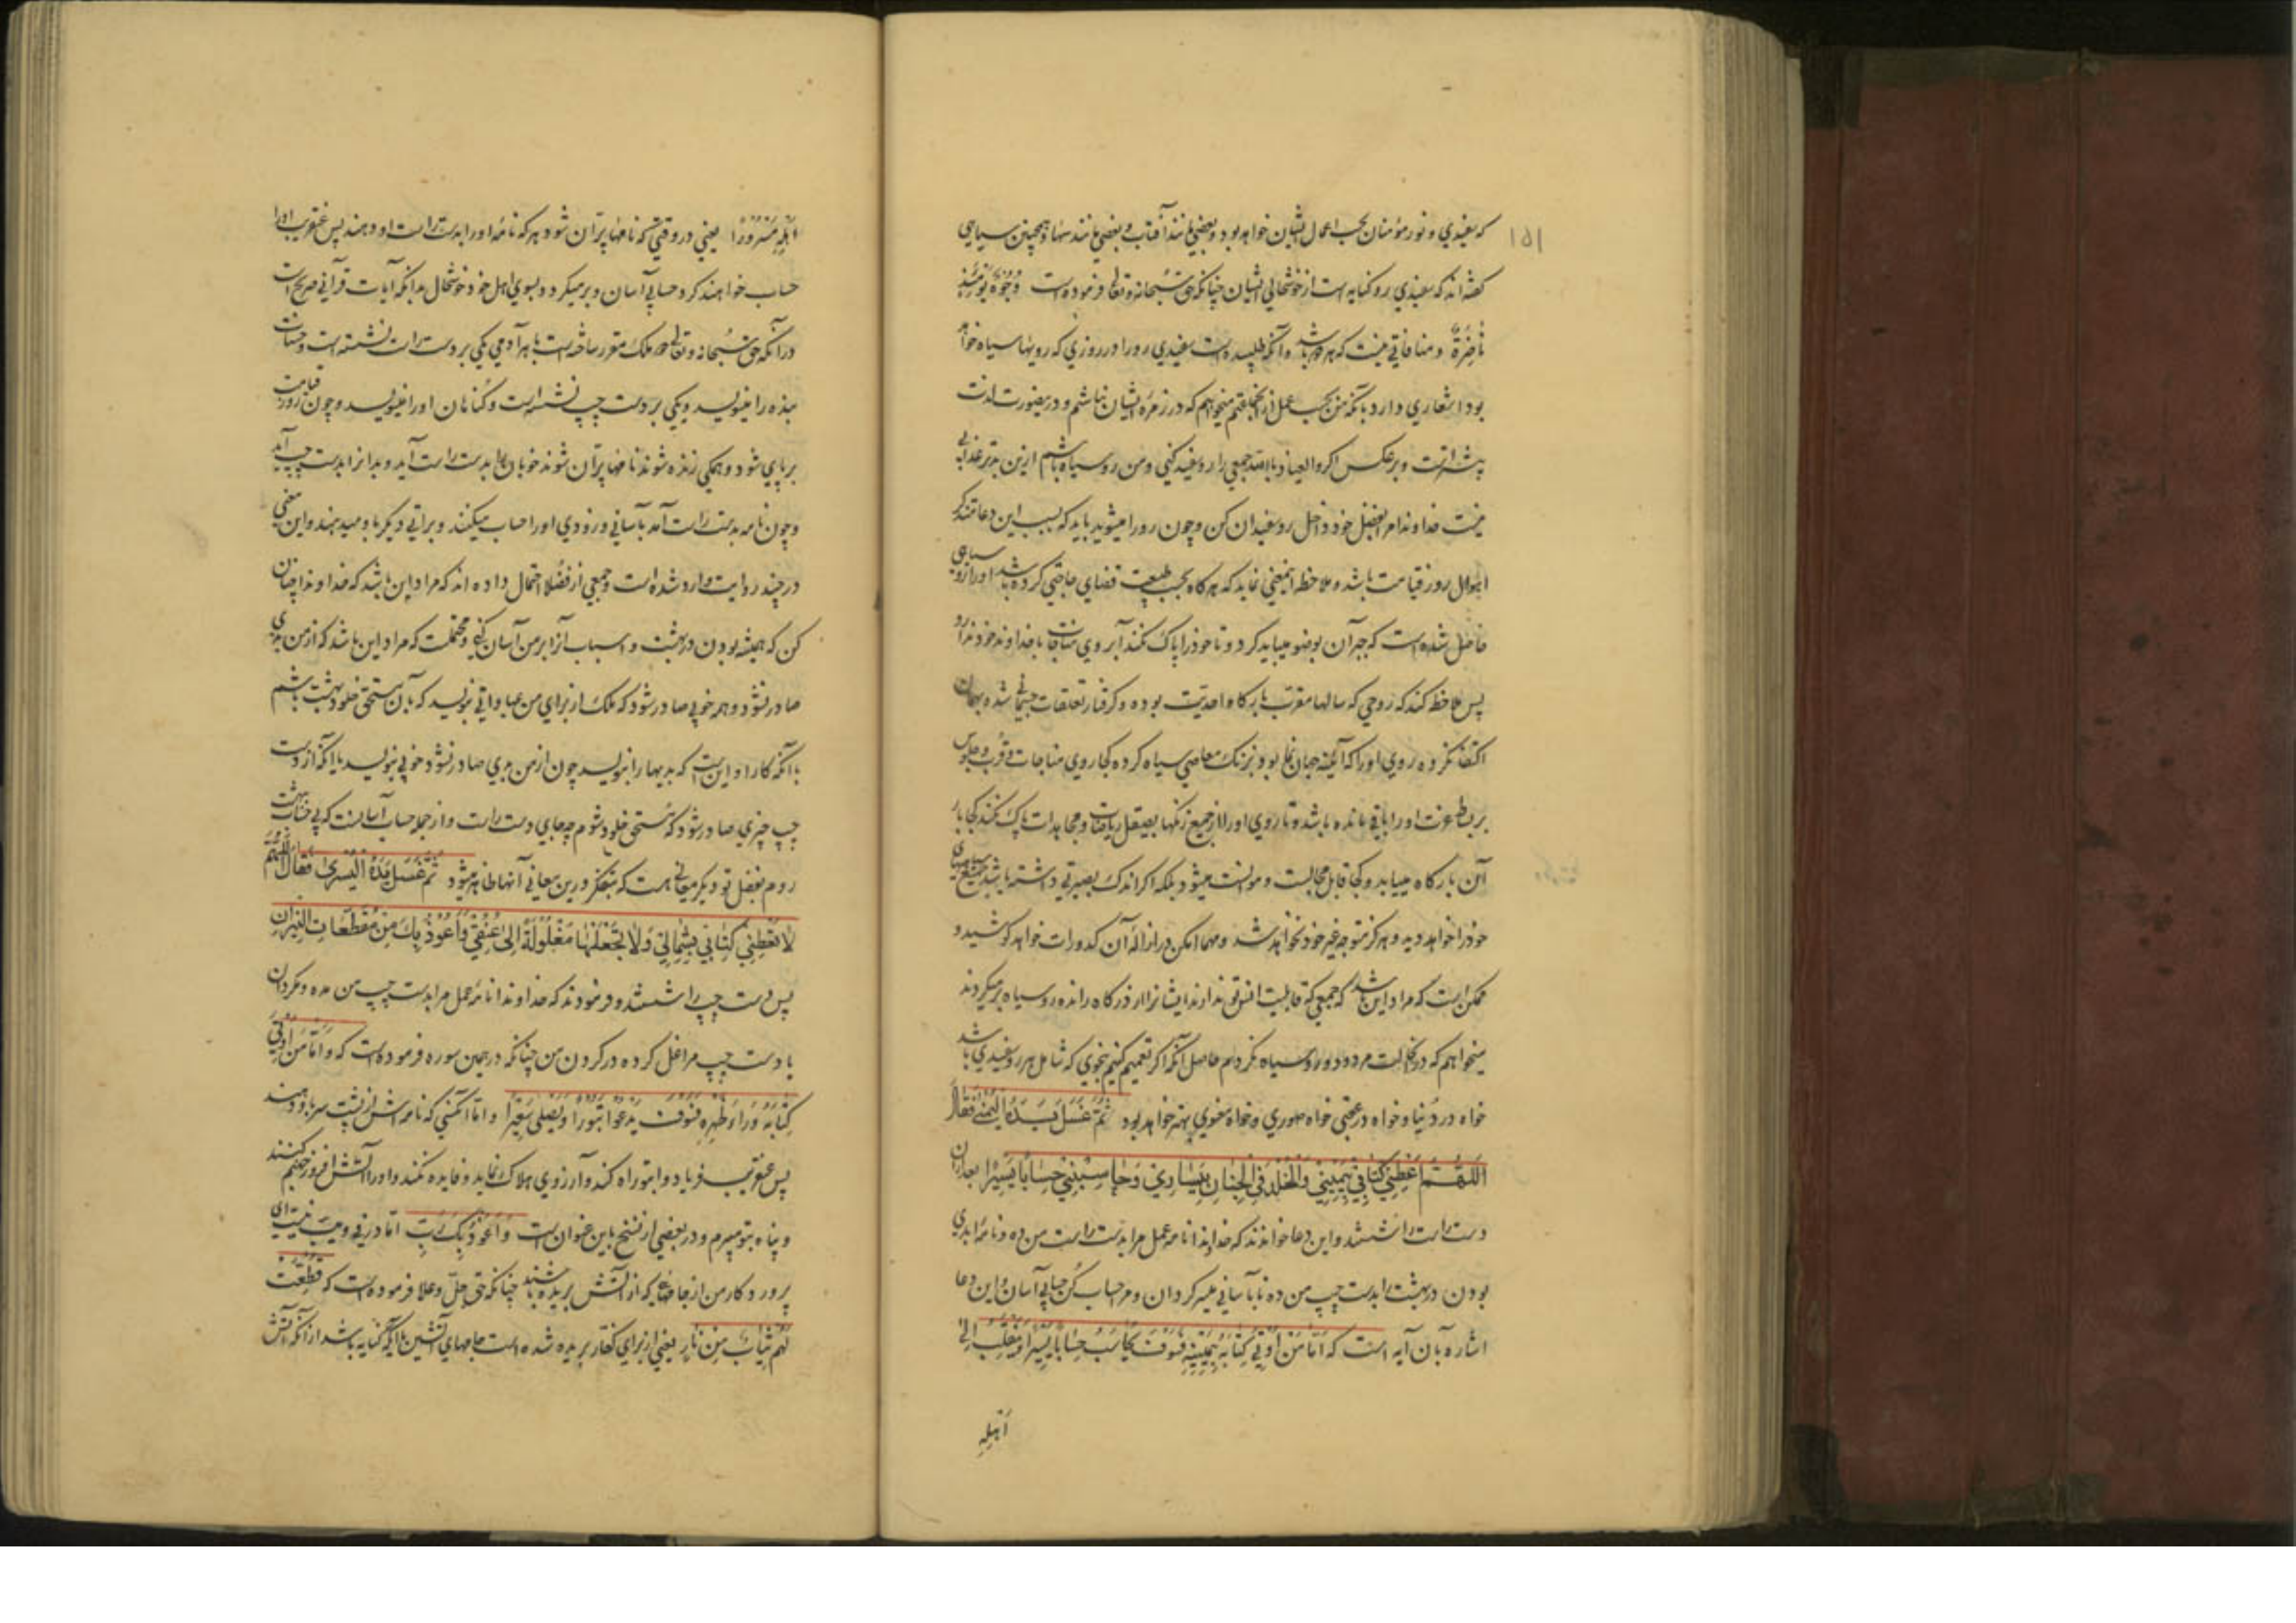 که سفیدی و نور مؤمنان بحسب اعمال ایشان خواهد بود و بعضی مانند آفتاب و بعضی مانند سها و همچنین سیاهی
کفته اند که سفیدی رو کنایه است از خوشحالی ایشان چنانکه حق سبحانه و تعالی فرموده است وُجُوهٌ یَوْمَئِذٍ
نٰاضِرَةٌ و منافاتی نیست که هر دو باشد و آنکه طلبیده است سفیدی رو را در روزی که رویها سیاه خواهد
بود اشعاری دارد بآنکه من بحسب عمل از آنجماعتم میخواهم که در زمره ایشان نباشم و درینصورت لذت
بیشتر است و برعکس اکر والعیاذ بالله جمعی را رو سفید کنی و من رو سیاه باشم ازین بدتر عذابی
نیست خداوندا مرا بفضل خود داخل رو سفیدان کن و چون رو را میشوید باید که بسبب این دعا متذکر
اهوال روز قیامت باشد و ملاحظه اینمعنی نماید که هرکاه بحسب طبیعت قضای حاجتی کرده باشد او را از وی سیاهی
حاصل شده است که جبر آن بوضو میباید کرد و تا خود را پاک نکند آبروی مناجات با خداوند خود ندارد
پس ملاحظه کند که روحی که سالها مقرب بارکاه احدیت بوده و کرفتار تعلقات جسمانی شده و بهمان
اکتفا نکرده روی او را که آئینه جهان نما بود بزنک معاصی سیاه کرده کجا روی مناجات و قرب و جلوس
بر بساط عزت او را باقی مانده باشد و تا روی او را از جمیع زنکها بصیقل ریاضات و مجاهدات پاک نکند کجا بار
آن بارکاه مییابد و کجا قابل مجالست و موانست میشود بلکه اکر اندک بصیرتی داشته باشد جمیع سیاهیهای
خود را خواهد دید و هرکز متوجه غیر خود نخواهد شد و مهما امکن در ازاله آن کدورات خواهد کوشید و
ممکن است که مراد این باشد که جمعی که قابلیت انس تو ندارند ایشانرا از درکاه رانده رو سیاه برمیکردند
میخواهم که در آنحالت مردود و رو سیاه نکردم حاصل آنکه اکر تعمیم کنیم بنحوی که شامل هر رو سفیدی باشد
خواه در دنیا و خواه در عقبی خواه صوری و خواه معنوی بهتر خواهد بود ثُمَّ غَسَلَ یَدَهُ الْیُمْنٰی فَقٰالَ
اَللّٰهُمَّ اَعْطِنِی کِتٰابِی بِیَمِینِی وَ الْخُلْدَ فِی الْجِنٰانِ بِیَسٰارِی وَ حٰاسِبْنِی حِسٰابًا یَسِیرًا بعد ازان
دست راست را شستند و این دعا خواندند که خداوندا نامه عمل مرا بدست راست من ده و نامه ابدی
بودن در بهشت را بدست چپ من ده تا بآسانی میسر کردان و مرا حساب کن حسابی آسان و این دعا
اشاره بآن آیه است که اَمّٰا مَنْ اُوتِیَ کِتٰابَهُ بِیَمِینِهِ فَسَوْفَ یُحٰاسَبُ حِسٰابًا یَسِیرًا وَ یَنْقَلِبُ اِلیٰ
اَهْلِهِ
اَهْلِهِ مَسْرُورًا یعنی در وقتی که نامها پرّان شود هر که نامه او را بدست راست او دهند پس عنقریب او را
حساب خواهند کرد حسابی آسان و برمیکردد بسوی اهل خود خوشحال بدانکه آیات قرآنی صریح است
در آنکه حق سبحانه و تعالی دو ملک مقرر ساخته است با هر آدمی یکی بر دست راست نشسته است و حسنات
بنده را مینویسد و یکی بر دست چپ نشسته است و کناهان او را مینویسد و چون روز قیامت
بر پای شود و همکی زنده شوند نامها پرّان شوند خوبان را بدست راست آید و بدانرا بدست چپ آید
و چون نامه بدست راست آمد بآسانی و زودی او را حساب میکنند و براتی دیکر باو میدهند و این معنی
در چند روایت وارد شده است و جمعی از فضلا احتمال داده اند که مراد این باشد که خداوندا چنان
کن که همیشه بودن در بهشت و اسباب آنرا بر من آسان کنی و محتملست که مراد این باشد که از من بدی
صادر نشود و همه خوبی صادر شود که ملک از برای من عباداتی بنویسد که بآن مستحق خلود بهشت باشم
با آنکه کار او این است که بدیها را بنویسد چون از من بدی صادر نشود خوبی بنویسد یا آنکه از دست
چپ چیزی صادر شود که مستحق خلود شوم چه جای دست راست و از جمله حساب آسانست که بی حساب ببهشت
روم بفضل تو و دیکر معانی هست که بتفکر درین معانی آنها ظاهر میشود ثُمَّ غَسَلَ یَدَهُ الْیُسْریٰ فَقٰالَ اَللّٰهُمَّ
لاٰ تُعْطِنِی کِتٰابِی بِشِمٰالِی وَ لاٰ تَجْعَلْهٰا مَغْلُولَةً اِلیٰ عُنُقِی وَ اَعُوذُ بِکَ مِنْ مُقَطَّعٰاتِ النِّیرٰانِ
پس دست چپ را شستند و فرمودند که خداوندا نامه عمل مرا بدست چپ من مده و مکردان
با دست چپ مرا غل کرده در کردن من چنانکه در همین سوره فرموده است که وَ اَمّٰا مَنْ اُوتِیَ
کِتٰابَهُ وَرٰاءَ ظَهْرِهِ فَسَوْفَ یَدْعُوا ثُبُورًا وَ یَصْلیٰ سَعِیرًا و اما آنکسی که نامه اش از پشت سر باو دهند
پس عنقریب فریاد واثبوراه کند و آرزوی هلاک نماید و فایده نکند و او را آتش افروز جهنم کنند
و پناه بتو میبرم و در بعضی از نسخ باین عنوان است وَ اَعُوذُ بِکَ رَبِّ اما در فی و یب نیست ای
پرورد کار من از جامهائی که از آتش بریده باشند چنانکه حق جلّ و علا فرموده است که قُطِّعَتْ
لَهُمْ ثِیٰابٌ مِنْ نٰارٍ یعنی از برای کفار بریده شده است جامهای آتشین یا آنکه کنایه باشد از آنکه آتش